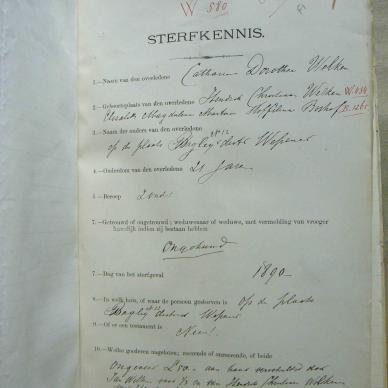 W 580
STERFKENNIS.
1.—Naam van den overledene Catharina Dorothea Welken
2.—Geboorteplaats van den overledene Hendrik Christiaan Welken W.434
Magdalena Martha Boshof B.1261
3.—Naam der ouders van den overledene
op de plaats Bagley distr Wepener
4.—Ouderdom van den overledene 21 Jare
5.—Beroep
7.—Getrouwd of ongetrouwd; weduwenaar of weduwe, met vermelding van vroeger
huwelijk indien zij bestaan hebben
Ongehuwd
7.—Dag van het sterfgeval 1890
8.—In welk huis, of waar de persoon gestorven is Op de plaats
Bagley district Wepener
9.—Of er een testament is Neen!
10.—Welke goederen nagelaten; roerende of onroerende, of beide
Ongeveer £50.— aan haar verschuldigd door
Jan en van Hendrik Christiaan Welken